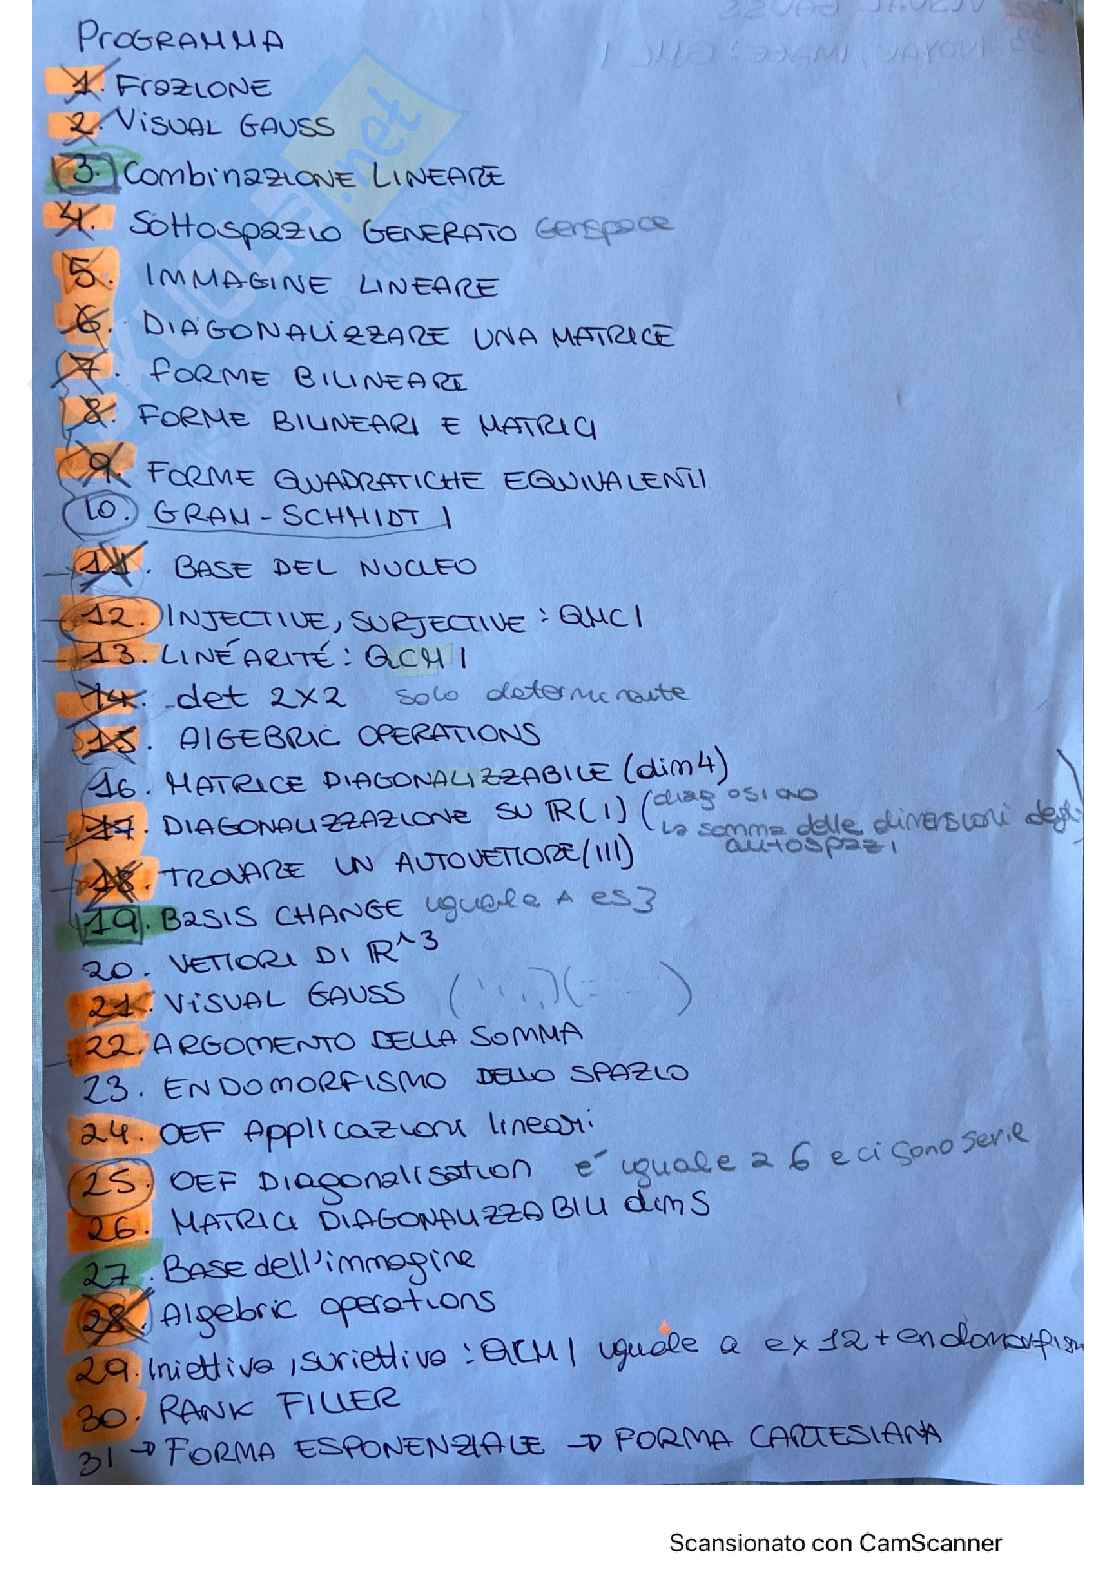 PrOGRAMMA
1. FraZIONE
2. VISUAL GAUSS
3. CombinazIONE LINEARE
4. SOttOspazio GENERATO Genspace
5. IMMAGINE LINEARE
6. DIAGONALIZZARE UNA MATRICE
7. fORME BILINEARI
8. FORME BILINEARI E MATRICI
9. FORME QUADRATICHE EQUIVALENTI
10. GRAM-SCHMIDT 1
11. BASE DEL NUCLEO
12. INJECTIVE, SURJECTIVE: QMC1
13. LINÉARITÉ: QCM 1
14. det 2x2 solo determinante
15. AlGEBRIC OPERATIONS
16. MATRICE DIAGONALIZZABILE (dim4)
17. DIAGONALIZZAZIONE SU R(1) (diag osi no
la somma delle dimensioni degli
autospazi
18. TROVARE UN AUTOVETTORE (III)
19. BaSIS CHANGE uguale A es3
20. VETTORI DI R^3
21. VISUAL GAUSS
22. ARGOMENTO DELLA SOMMA
23. ENDOMORFISMO DELLO SPAZIO
24. OEF Applicazioni lineari
25. OEF Diagonalisation e' uguale a 6 e ci sono serie
26. MATRICI DIAGONALIZZABILI dim 5
27. Base dell'immagine
28. Algebric operations
29. Iniettiva, suriettiva: QCM 1 uguale a ex 12 + endomorfism
30. RANK FILLER
31 → FORMA ESPONENZIALE → FORMA CARTESIANA
Scansionato con CamScanner